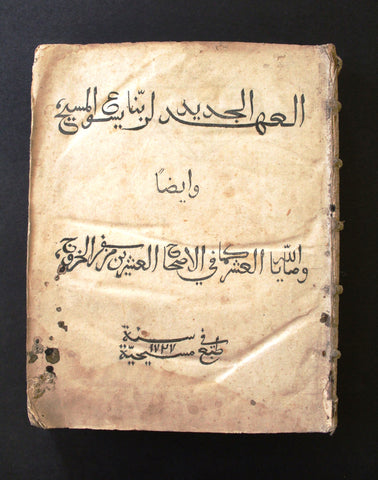 العهد الجديد لربنا يسوع المسيح
وايضاً
وصايا الله العشر كما في الاصحاح العشرين من سفر الخروج
طبع في سنة
١٧٢٧ مسيحية